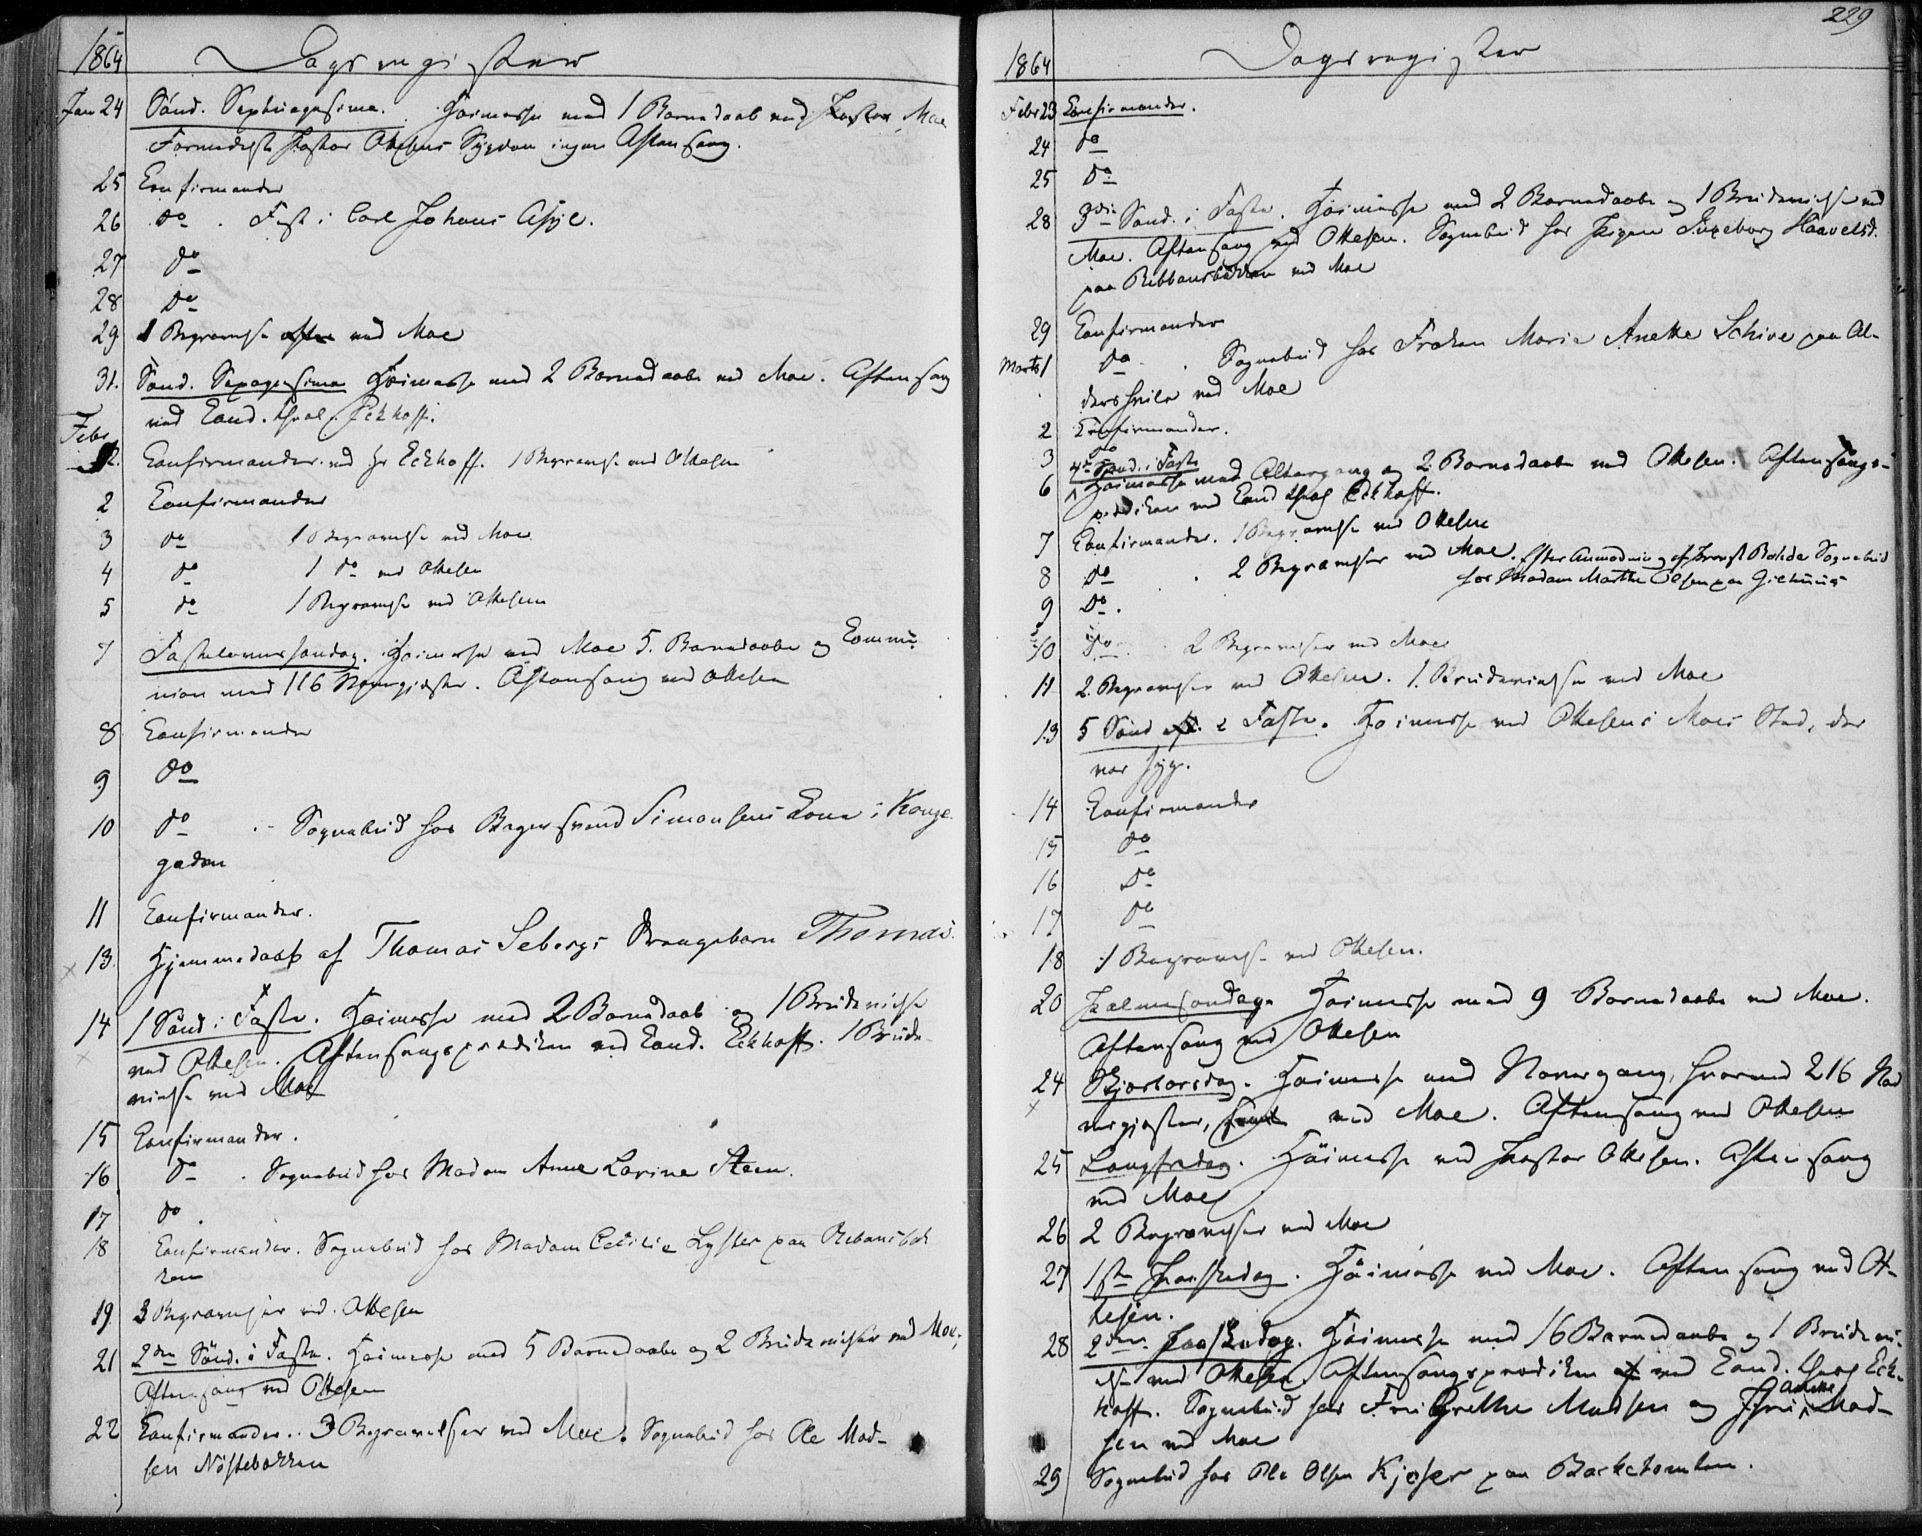 1864 Dagsregister
Jan 24 Sönd. Septuagesima. Høimesse med 1 Barnedaab ved Pastor Moe
Formedelst Pastor Ottesens Sygdom ingen Aftensang.
25 Confirmander
26 do. Fest i Carl Johans Asyl.
27 do
28 do
29 1 Begravelse ved Moe
31. Sönd. Sexagesima Høimesse med 2 Barnedaabe ved Moe. Aftensang
ved Cand. theol. Eckhoff.
Febr
1. Confirmander ved Hr Eckhoff. 1 Begravelse ved Ottesen
2 Confirmander
3 do 1 Begravelse ved Moe
4 do 1 do ved Ottesen
5 do 1 Begravelse ved Ottesen
7 Fastelavnssøndag. Høimesse ved Moe 5 Barnedaabe og Commu-
nion med 116 Nadvergjæster. Aftensang ved Ottesen
8 Confirmander
9 do
10 do Sognebud hos Bagersvend Simonsens Kone i Konge
gaden
11 Confirmander.
13. Hjemmedaab af Thomas Sebergs Drengebarn Thomas.
14 1 Sönd. i Faste. Høimesse med 2 Barnedaab og 1 Brudevielse
ved Ottesen. Aftensangsprædiken ved Cand. Eckhoff. 1 Brude-
vielse ved Moe
15 Confirmander.
16 do. Sognebud hos Madam Anne Larine Steen.
17 do.
18 Confirmander. Sognebud hos Madam Cecilie Lyster paa
ken
19. 3 Begravelser ved Ottesen
21 2den Sönd. i Faste. Høimesse med 5 Barnedaabe og 2 Brudevielser ved Moe,
Aftensang ved Ottesen
22 Confirmander. 3 Begravelser ved Moe. Sognebud hos Ole Mad-
sen Nöstebakken
229
1864 Dagsregister
Febr 23 Confirmander.
24 do
25 do
28 3die Sönd. i Faste. Høimesse med 2 Barnedaabe og 1 Brudevielse ved
Moe. Aftensang ved Ottesen. Sognebud hos Pigen Ingeborg Haavelsd.
paa ved Moe
29 Confirmander
Marts 1 do. Sognebud hos Frøken Marie Anette Schive paa Al-
dershvile ved Moe
2 Confirmander.
3 do
4de Sönd. i Faste
6 Høimesse med Altergang og 2 Barnedaabe ved Ottesen. Aftensangs-
prædiken ved Cand theol Eckhoff.
7 Confirmander. 1 Begravelse ved Ottesen
8 do. 2 Begravelser ved Moe. Efter Anmodning af Provst Sognebud
hos Madam Marthe Olsen paa
9 do.
10 do. 2 Begravelser ved Moe
11 2 Begravelser ved Ottesen. 1 Brudevielse ved Moe
13 5 Sönd i Faste. Høimesse ved Ottesen i Moes Sted, der
var syg.
14 Confirmander
15 do
16 do
17 do
18 1 Begravelse ved Ottesen.
20 Palmesøndag. Høimesse med 9 Barnedaabe ved Moe.
Aftensang ved Ottesen
24 Skjærtorsdag. Høimesse med Altergang, hvorved 216 Nad
vergjæster, ved Moe. Aftensang ved Ottesen
25 Langfredag. Høimesse ved Pastor Ottesen. Aftensang
ved Moe
26 2 Begravelser ved Moe
27 1ste Paaskedag. Høimesse ved Moe. Aftensang ved Ot-
tesen.
28 2den Paaskedag. Høimesse med 16 Barnedaabe og 1 Brudevi-
else ved Ottesen Aftensangsprædiken ved Cand. theol Eck-
hoff. Sognebud hos Grethe Madsen og Mad-
sen ved Moe
29 Sognebud hos Ole Olsen Kjøser paa Barketomten.